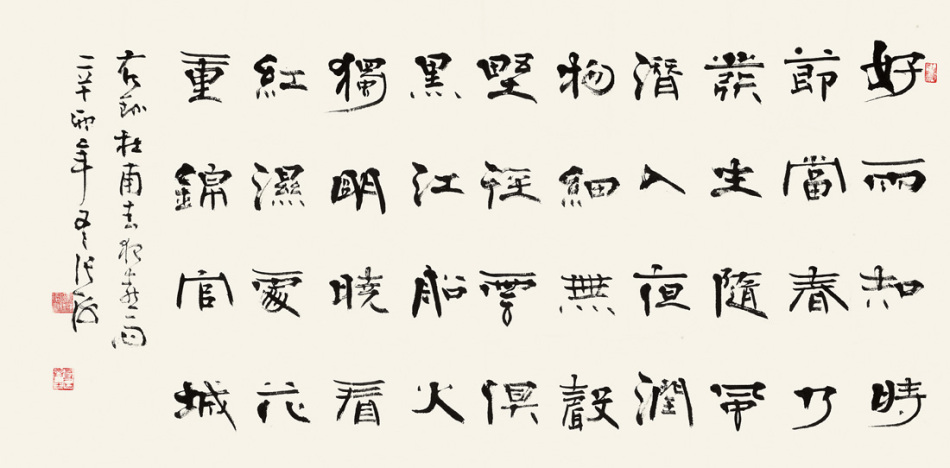 好雨知時
節當春乃
發生隨風
潛入夜潤
物細無聲
野徑雲俱
黑江船火
獨明曉看
紅濕處花
重錦官城
右錄杜甫春夜喜雨
年